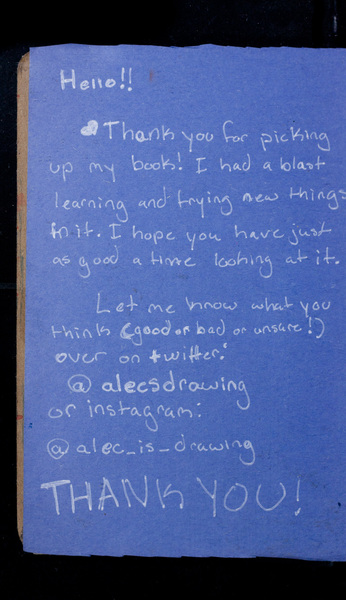 Hello!!
Thank you for picking
up my book! I had a blast
learning and trying new things
in it. I hope you have just
as good a time looking at it.
Let me know what you
think (good or bad or unsure!)
over on twitter:
@alecsdrawing
or instagram:
@alec_is_drawing
THANK YOU!